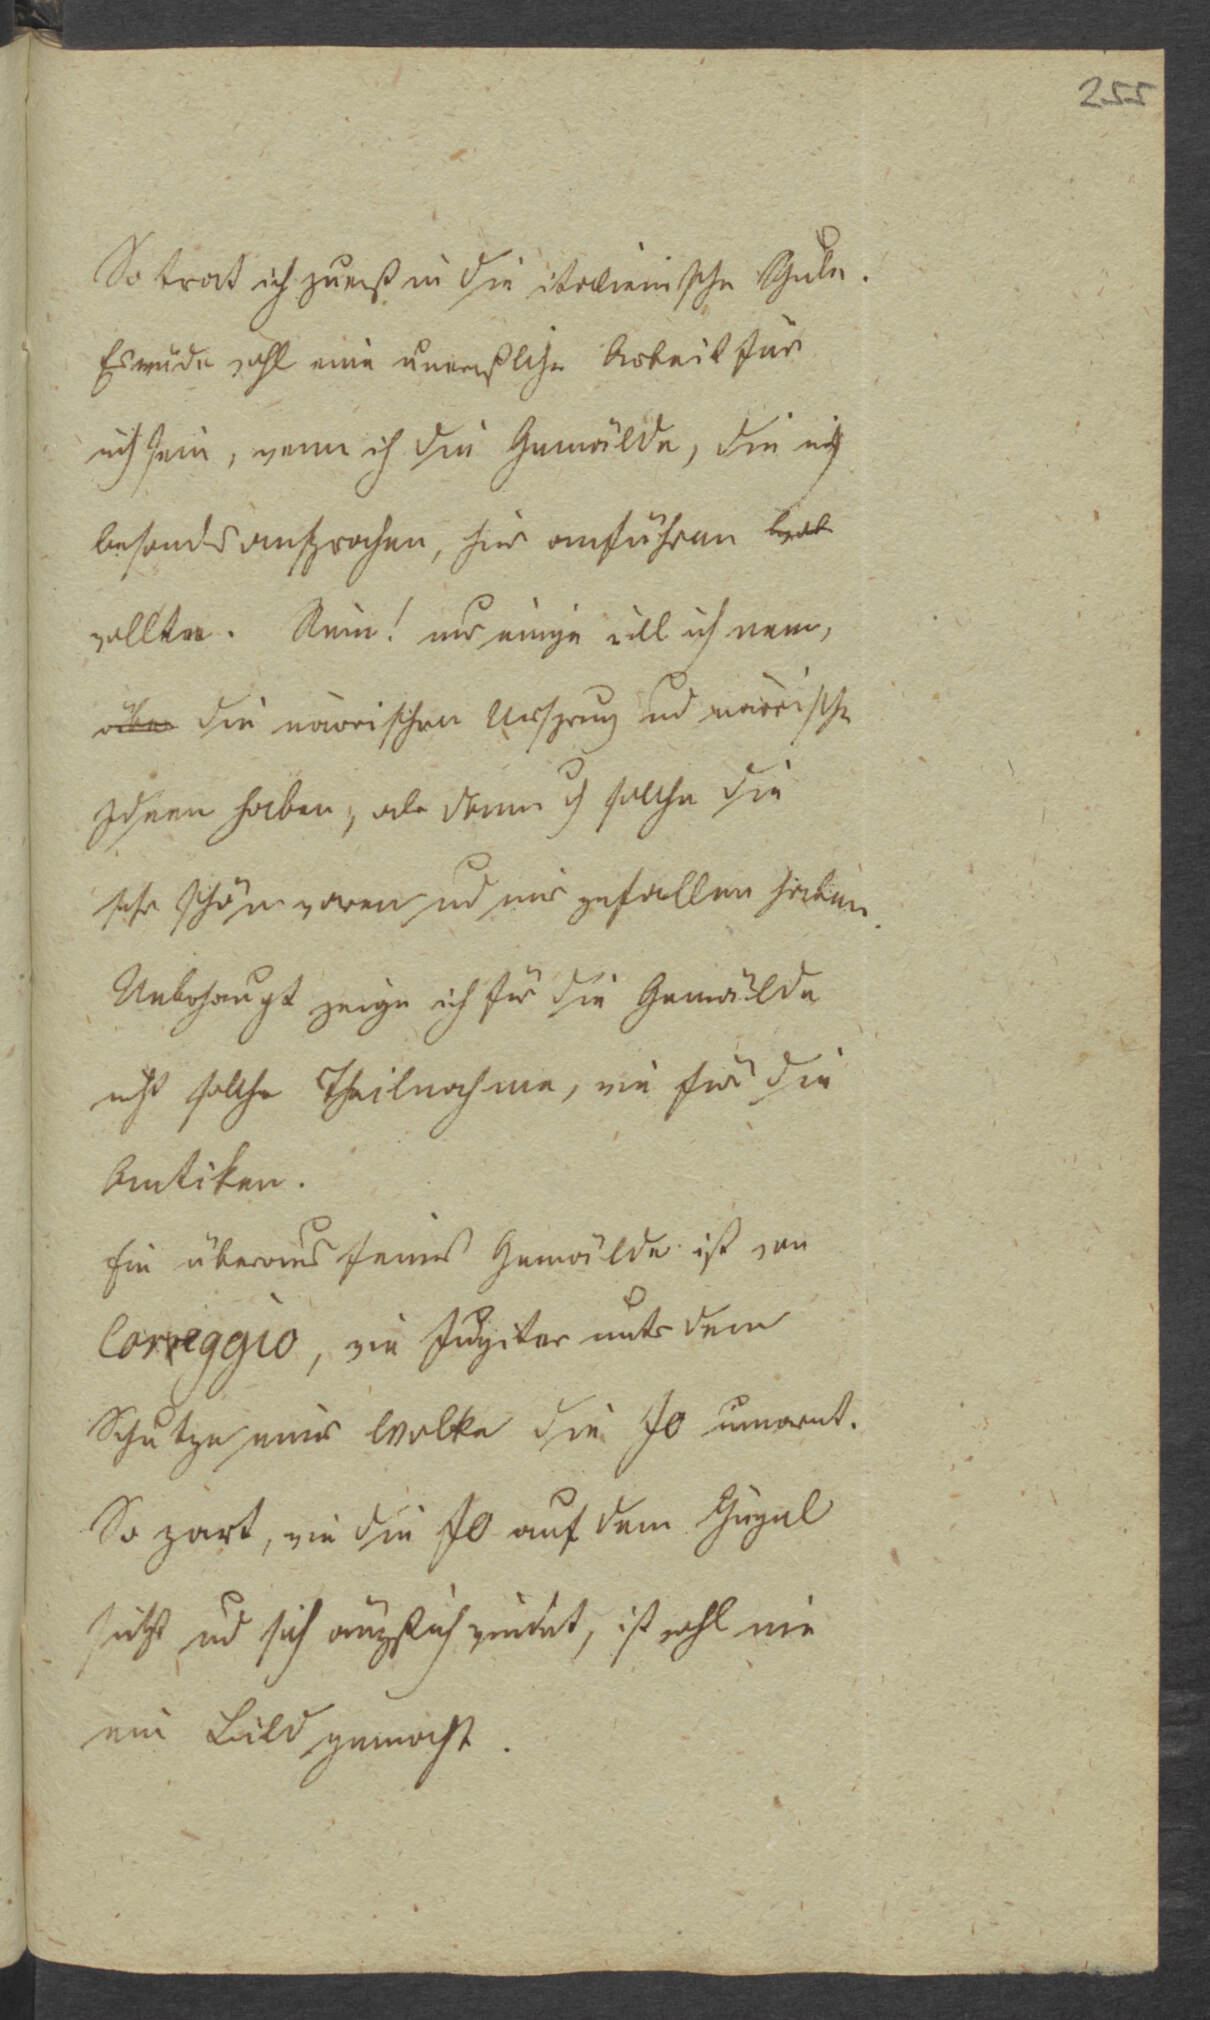 255
So trat ich zuerst in die italienische Schule.
Es würde wohl eine unermeßliche Arbeit für
mich sein, wenn ich die Gemälde, die mich
besonders ansprachen, hier anführen
wollte. Nein! nur einige will ich nennen,
aber die närrischen Ursprung und närrische
Ideen haben, als dann auch solche die
sehr schön waren und mir gefallen haben.
Ueberhaupt zeige ich für die Gemälde
nicht solche Theilnahme, wie für die
Antiken.
Ein überaus feines Gemälde ist von
Correggio, wie Jupiter unter dem
Schutze einer Wolke die Jo umarmt.
So zart, wie die Jo auf dem Hügel
sitzt und sich ängstlich windet, ist wohl nie
ein Bild gemacht.